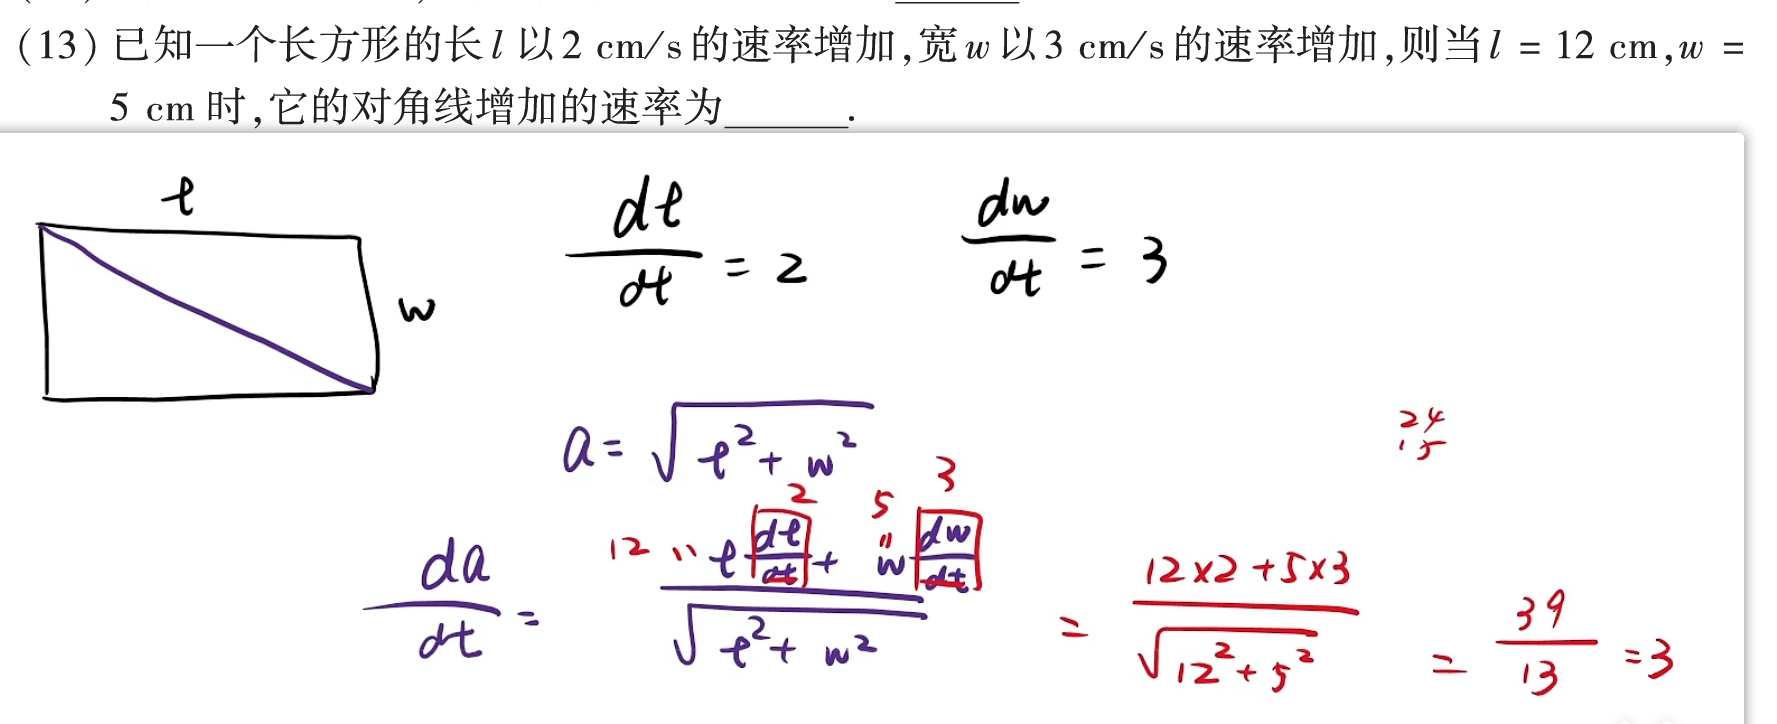 (13) 已知一个长方形的长 l 以 2 cm/s 的速率增加,宽 w 以 3 cm/s 的速率增加,则当 l = 12 cm,w =
5 cm 时,它的对角线增加的速率为______.
ℓ
w
dℓ/dt = 2
dw/dt = 3
a = √(ℓ²+w²)
24
15
12 2 5 3
da/dt = (ℓ dℓ/dt + w dw/dt)/√(ℓ²+w²) = (12×2+5×3)/√(12²+5²) = 39/13 = 3